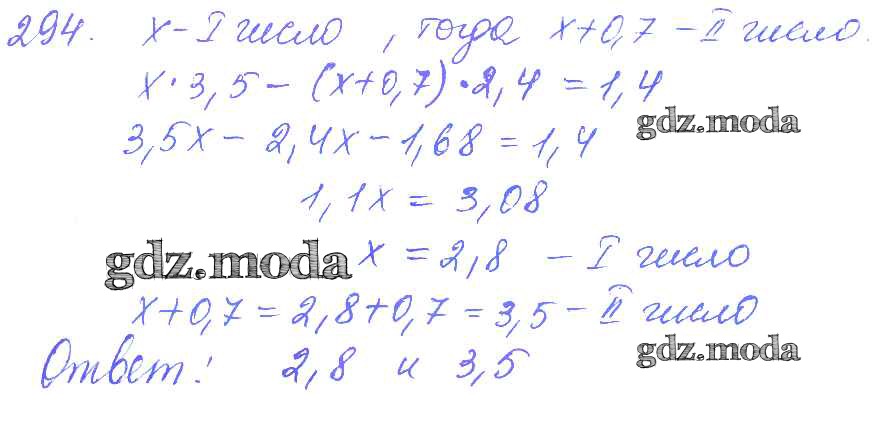 294. x - I число, тогда x+0,7 - II число.
x·3,5 - (x+0,7)·2,4 = 1,4
gdz.moda
3,5x - 2,4x - 1,68 = 1,4
1,1x = 3,08
gdz.moda x = 2,8 - I число
x+0,7 = 2,8+0,7 = 3,5 - II число
gdz.moda
Ответ: 2,8 и 3,5